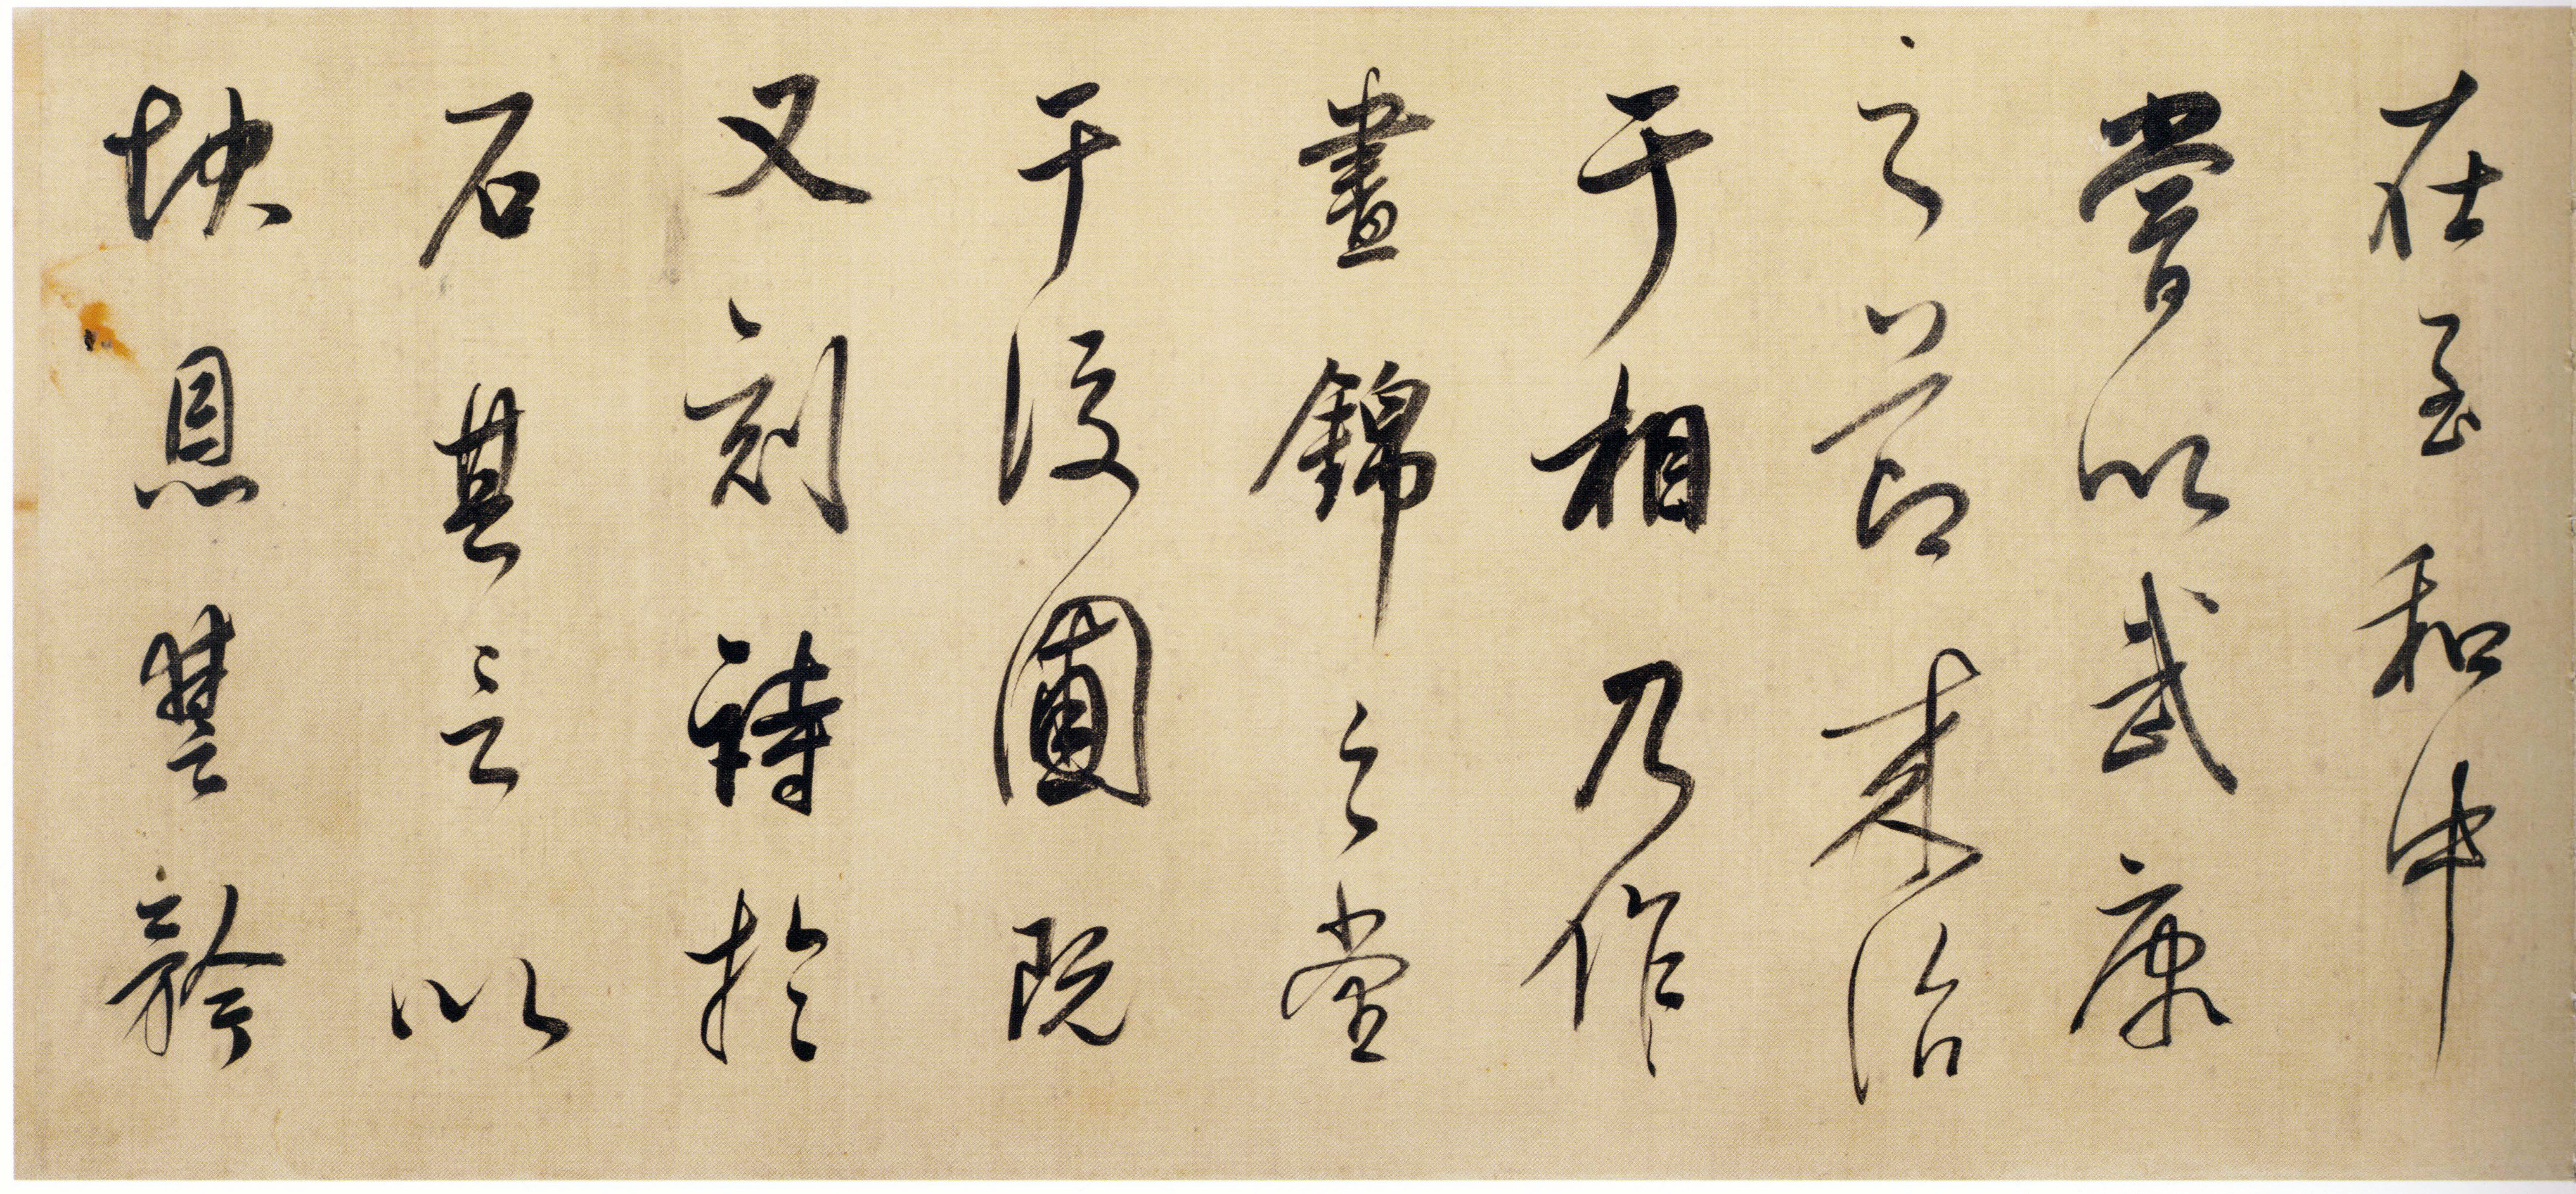 在至和中
嘗以武康
之節来治
于相乃作
晝錦之堂
于後圃既
又刻詩於
石其言以
快恩讐矜